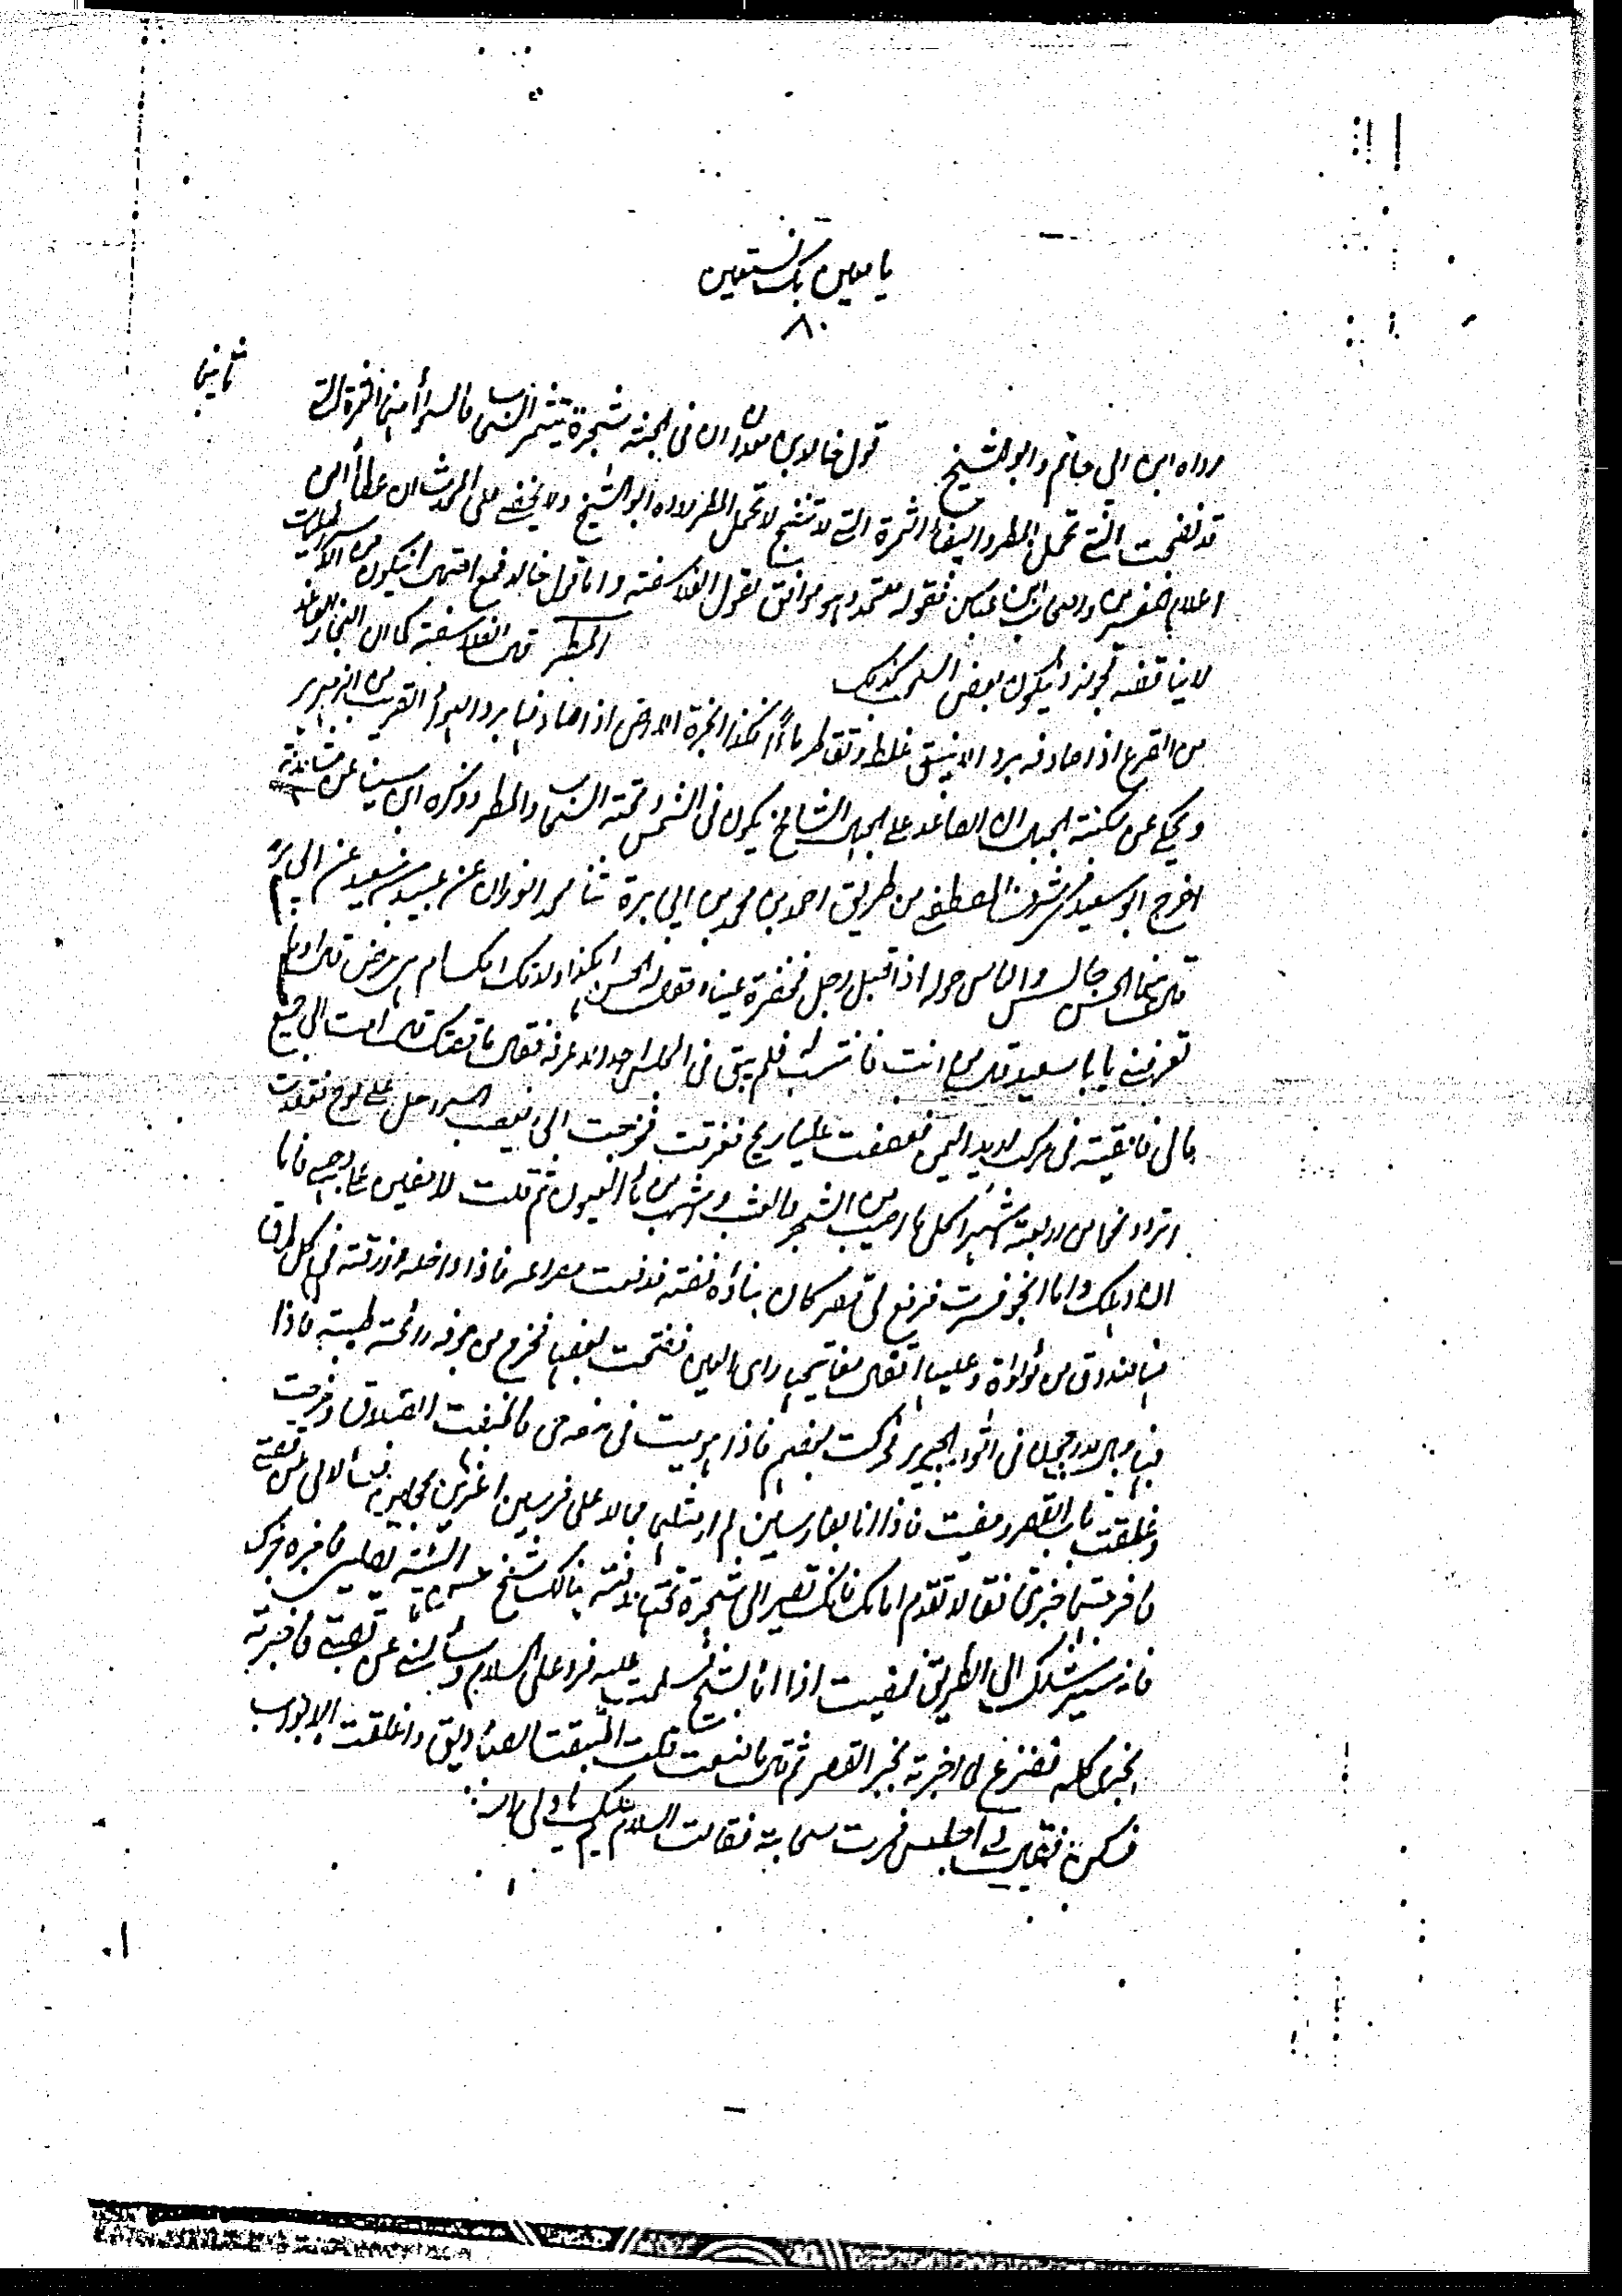 يا معين بك نستعين
٨٠
ثانيها
رواه ابن ابي حاتم وابو الشيخ قول خالد بن معدان ان في الجنة شجرة تثمر السحاب فالسوداء منها الثمرة التي
قد نضجت التي تحمل المطر والبيضاء الثمرة التي لا تنضج لا تحمل المطر رواه ابو الشيخ ولا يخفى على المحدث ان عطاء من
اعلام المفسرين واصحاب ابن عباس فقوله معتمد وهو موافق لقول الفلاسفة واما قول خالد فمع احتمال ان يكون من الاسرائيليات
لا يناقضه لجواز ان يكون بعض السحب كذلك المطر قال الفلاسفة كما ان البخار الصاعد
من القرع اذا صادفه برد الانبيق غلظ وتقاطر ماءً هكذا ابخرة الارض اذا صادفها برد الهواء القريب من الزمهرير
ويحكى عن سكنة الجبال ان الصاعد على الجبال الشامخ يكون في الشمس وتحته السحاب والمطر وذكره ابن سينا عن مشاهدة
اخرج ابو سعيد في شرف المصطفى من طريق احمد بن محمد بن ابي برة ثنا محمد الفوزان عن عبيد بن سعيد عن ابي
قال بينما الحسن جالس والناس حوله اذ اقبل رجل مخضرة عيناه فقال له الحسن اهكذا ولدتك امك ام هي مرض قال اوما
تعرفني يا ابا سعيد قال من انت فانتسب فلم يبق في المجلس احد الا عرفه فقال ما قصتك قال عمدت الى جميع
مالي فالقيته في مركب اريد اليمن فعصفت علينا ريح فغرقت فخرجت الى بعض السواحل على لوح فقعدت
اتردد نحوا من اربعة اشهر اكل ما اصيب من الشجر والعشب واشرب من ماء العيون ثم قلت لامضين على وجهي فاما
ان اهلك واما انجو فسرت فرفع لي قصر كان بناؤه فضة فدفعت مصراعه فاذا داخله اروقة في كل طاق
منها صندوق من لؤلؤة وعليها اقفال مفاتيحها راى العين ففتحت بعضها فخرج من جوفه رائحة طيبة فاذا
فيها رجال مدرجون في اثواب الحرير فحركت بعضهم فاذا هو ميت في صفة حي فاطبقت الصندوق وخرجت
وغلقت باب القصر ومضيت فاذا انا بفارسين لم ار مثلهما جمالا على فرسين اغرين محجلين فسألاني عن قصتي
فاخبرتهما خبري فقالا تقدم امامك فانك تصير الى شجرة تحتها روضة هنالك شيخ حسن الهيئة يصلي فاخبره خبرك
فانه سيرشدك الى الطريق فمضيت فاذا انا بالشيخ فسلمت عليه فرد علي السلام وسألني عن قصتي فاخبرته
بخبري كله ففزع لما اخبرته بخبر القصر ثم قال ما صنعت قلت اطبقت الصناديق واغلقت الابواب
فسكن فقال لي اجلس فمرت سحابة فقالت السلام عليك يا ولي الله